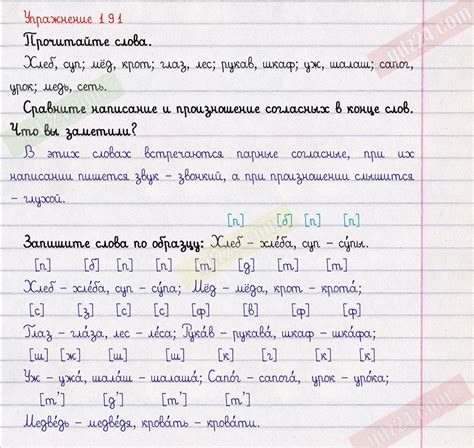 Упражнение 191
Прочитайте слова.
Хлеб, суп; мёд, крот; глаз, лес; рукав, шкаф; уж, шалаш; сапог,
урок; медь, сеть.
Сравните написание и произношение согласных в конце слов.
Что вы заметили?
В этих словах встречаются парные согласные, при их
написании пишется звук – звонкий, а при произношении слышится
– глухой.
[п] [б] [п] [п]
Запишите слова по образцу: Хлеб – хле́ба, суп – су́пы.
[п] [б] [п] [п] [т] [д] [т] [т]
Хлеб – хле́ба, суп – су́па; Мёд – мёда, крот – крота́;
[с] [з] [с] [с] [ф] [в] [ф] [ф]
Глаз – гла́за, лес – ле́са; Рука́в – рукава́, шкаф – шка́фа;
[ш] [ж] [ш] [ш] [к] [г] [к] [к]
Уж – ужа́, шала́ш – шалаша́; Сапо́г – сапога́, урок – уро́ка;
[т'] [д'] [т'] [т']
Медве́дь – медве́дя, крова́ть – крова́ти.
gdz24.com
gdz24.com
gdz24.com